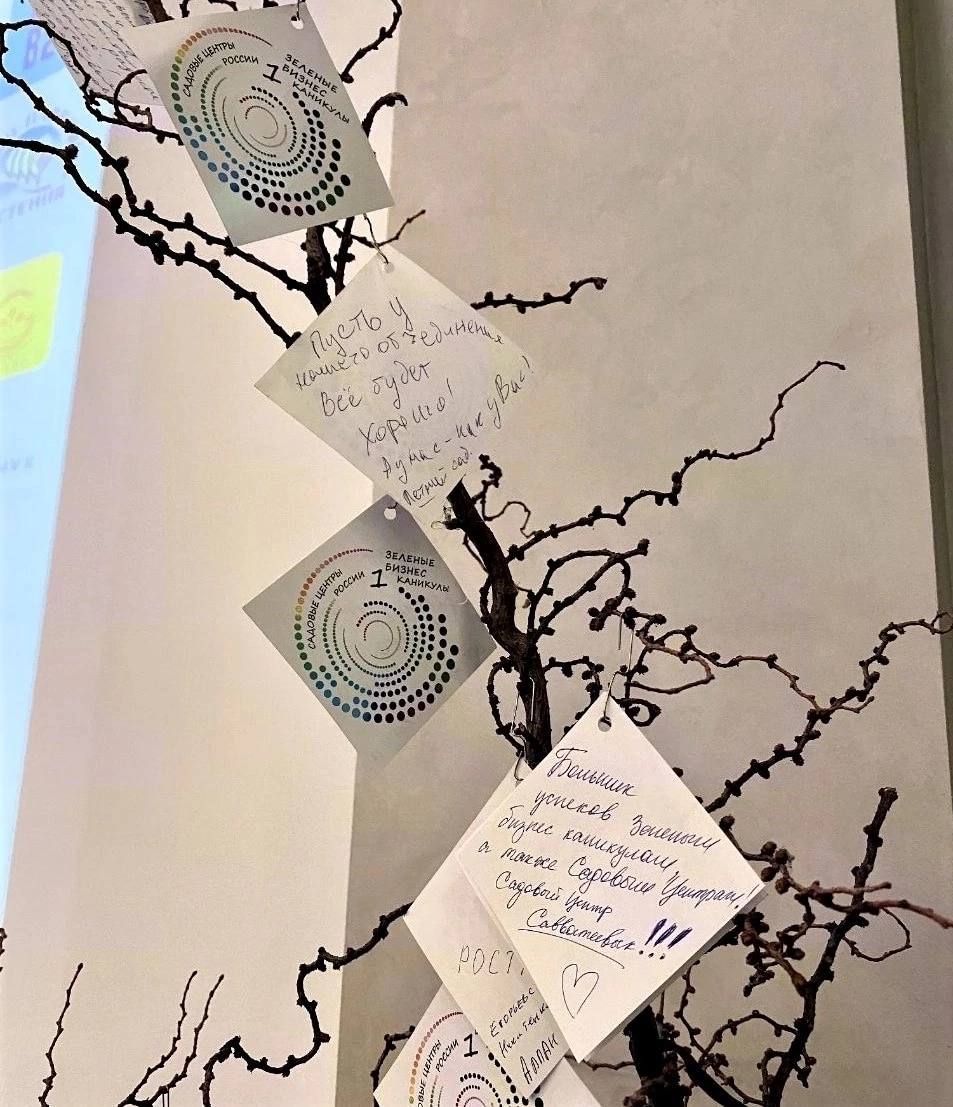 САДОВЫЕ ЦЕНТРЫ
РОССИИ
1
ЗЕЛЕНЫЕ
БИЗНЕС
КАНИКУЛЫ
Пусть у
нашего объединения
Всё будет
Хорошо!
А у нас - как у Вас!
Летний сад.
САДОВЫЕ ЦЕНТРЫ
РОССИИ
1
ЗЕЛЕНЫЕ
БИЗНЕС
КАНИКУЛЫ
Больших
успехов Зеленым
бизнес каникулам,
а также Садовым Центрам!
Садовый Центр
Савватеевых!!!
РОСТ
РОССИИ
1